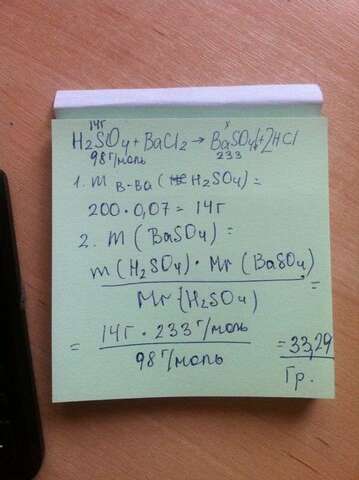 14г x
H2SO4 + BaCl2 → BaSO4↓ + 2HCl
98г/моль 233
1. m в-ва (H2SO4) =
200 · 0,07 = 14г
2. m (BaSO4) =
m(H2SO4) · Mr (BaSO4)
=
Mr (H2SO4)
= 14г · 233 г/моль = 33,29
98 г/моль Гр.